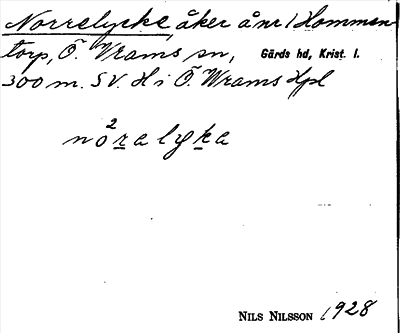 Norrelycke, åker å nr 1 Hommen
torp, Ö. Vrams sn, Gärds hd, Krist. l.
300 m. SV. H i Ö. Wrams Hpl
nò²ralyka
NILS NILSSON 1928